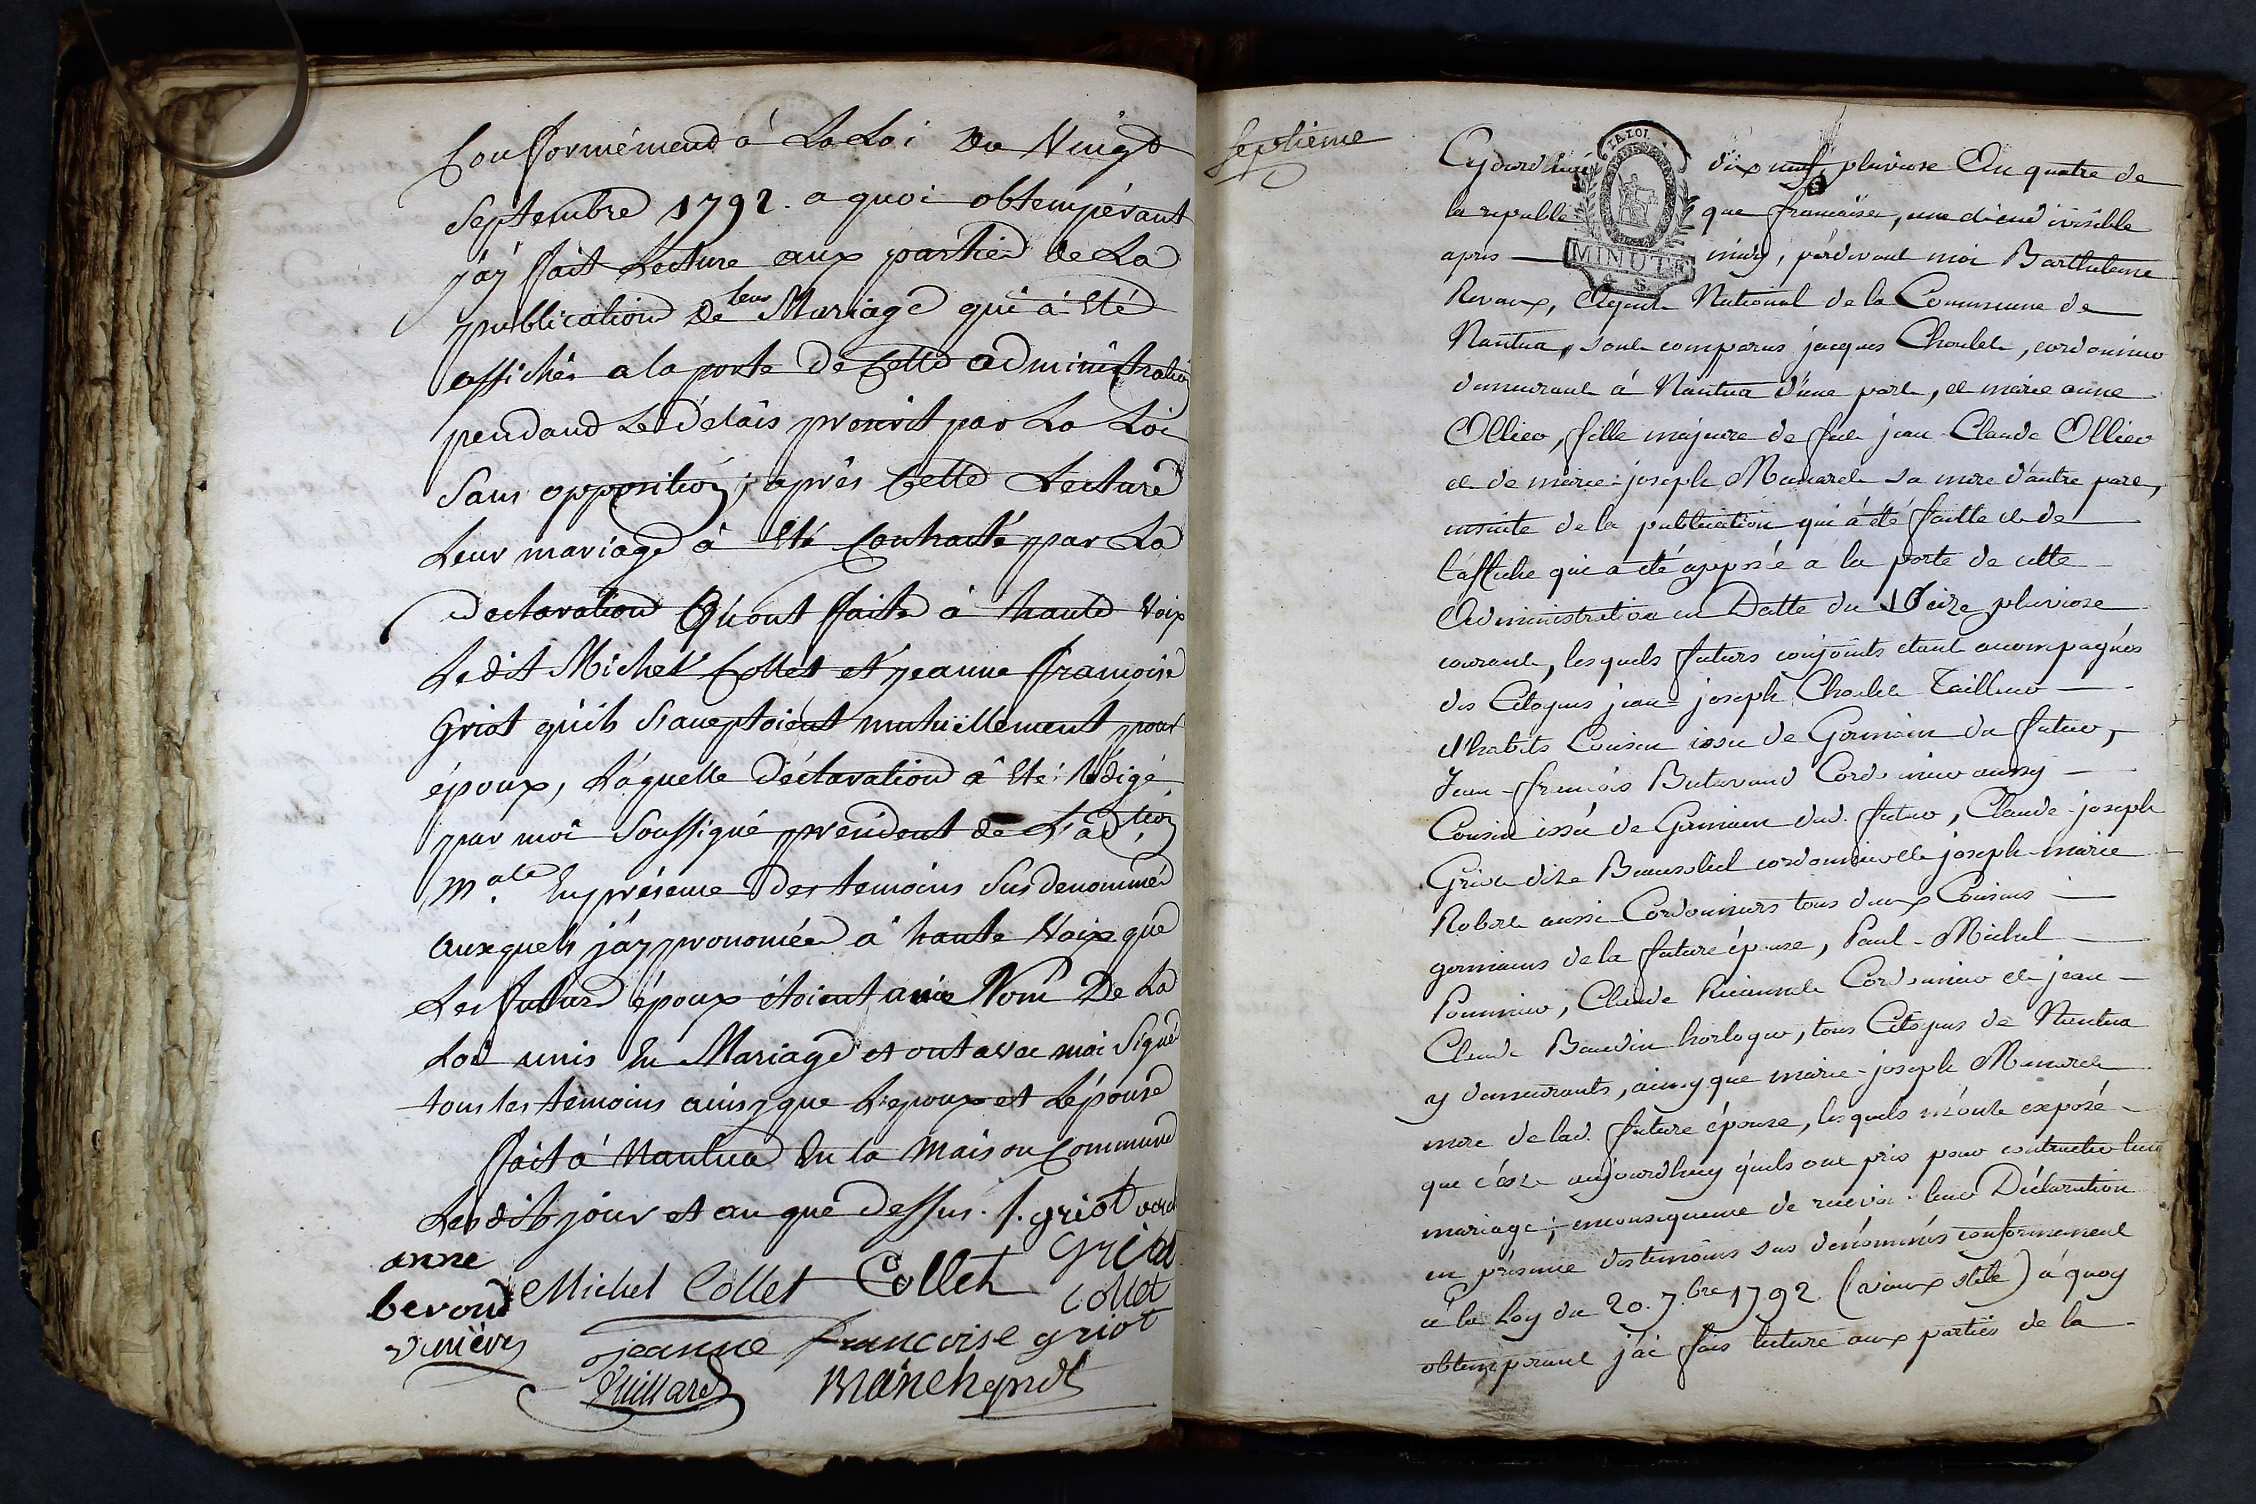 Conformément à La Loi du Vingt
Septembre 1792. a quoi obtempérant
j'ay fait Lecture aux parties de La
publication de leur Mariage qui à Eté
affichée a la porte de Cette administration
pendand Le Délais prescrit par La Loi
Sans opposition; après Cette Lecture
Leur mariage à Eté Contracté par La
declaration Qu'ont faite à haute Voix
Ledit Michel Collet et jeanne francoise
Griot qu'ils S'aceptoient mutuellement pour
époux, Laquelle déclaration à Eté Rédigé
par moi Soussigné president de L'ad.tion
M.ale En présence des temoins Sus denommés
auxquels j'ay prononcée à haute Voix que
Les futurs époux étoient au Nom De La
Loi unis En Mariage et ont avec moi Signé
tous les temoins ainsy que L'epoux et L'épouse
fait à Nantua En la Maison Commune
Lesdits jour et an que dessus. f. griot
anne Griot
Michel Collet Collet Collet
jeanne francoise griot
Vuillard
Septieme
LA LOI
MINUTE
Cejourdhuy dix neuf pluviose An quatre de
la republique francaise, une et indivisible
apres midy, pardevant moi Barthelemie
Revaux, Agent National de la Commune de
Nantua, sont comparus jacques Choulet, cordonnier
demeurant à Nantua d'une part, et marie anne
Ollier, fille majeure de feu jean Claude Ollier
et de marie-joseph Munaret sa mere d'autre part,
ensuite de la publication qui à été faitte et de
l'affiche qui a eté apposé a la porte de cette
Administration en Datte du seize pluviose
courant, lesquels futurs conjoints etant acompagnés
des Citoyens jean-joseph Choulet Tailleur
d'habits Cousin issu de Germain du futur,
Jean-francois Butavand Cordonnier aussy
Cousin issu de Germain dud. futur, Claude-joseph
Griot dit Beausoleil cordonnier et joseph-marie
Robert aussi Cordonniers tous deux Cousins
germains de la future épouse, Paul-Michel
Claude Cordonnier et jean
Claude Baudin horloger, tous Citoyens de Nantua
y demeurants, ainsy que marie-joseph Munaret
mere de lad. future épouse, lesquels m'ont exposé
que c'est aujourdhuy qu'ils ont pris pour contracter leur
mariage; en consequence de recevoir leur Déclaration
en présence des temoins sus denommés conformement
à la Loy du 20. 7.bre 1792. (vieux stile) à quoy
obtemperant j'ai fais lecture aux parties de la